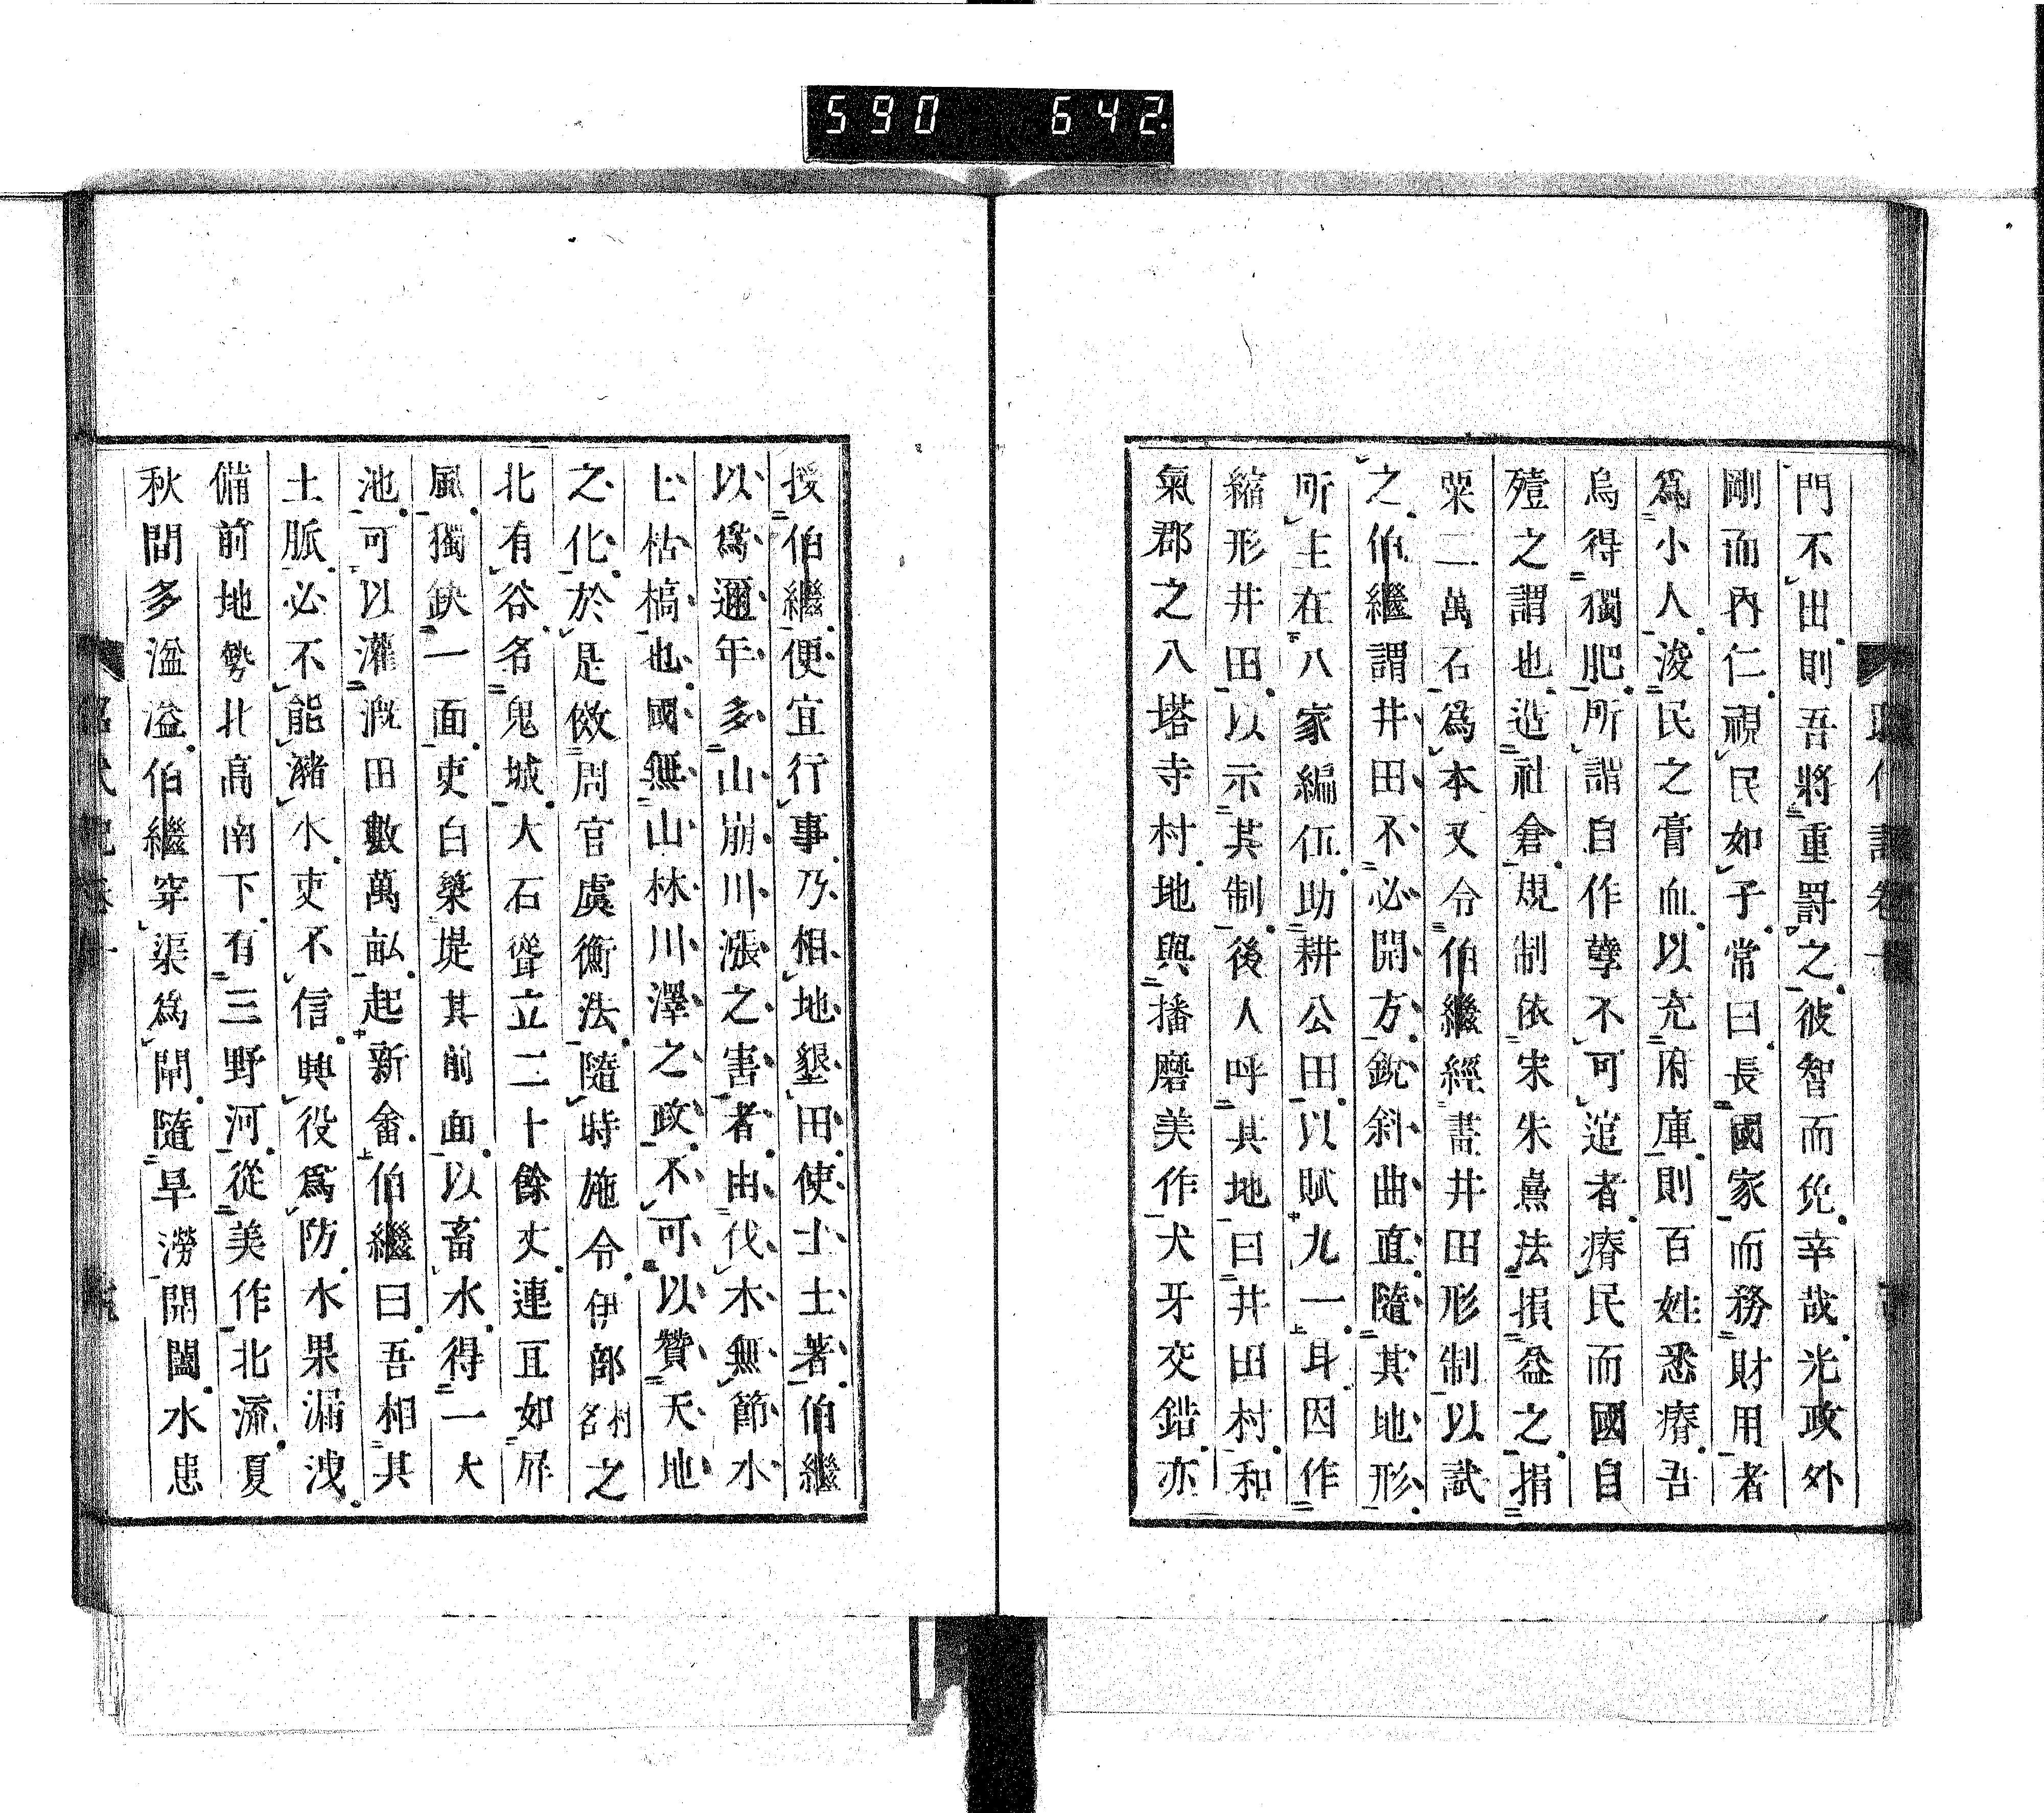 590 642
門不出則吾將重罸之彼智而免幸哉光政外
剛而內仁視民如子常曰長國家而務財用者
爲小人浚民之膏血以充府庫則百姓悉瘠吾
烏得獨肥所謂自作孽不可逭者瘠民而國自
殪之謂也造社倉規制依宋朱熹法損益之捐
粟二萬石爲本又令伯繼經畫井田形制以試
之伯繼謂井田不必開方銳斜曲直隨其地形
所主在八家編伍助耕公田以賦九一耳因作
縮形井田以示其制後人呼其地曰井田村和
氣郡之八塔寺村地與播磨美作犬牙交錯亦
授伯繼便宜行事乃相地墾田使士土著伯繼
以爲邇年多山崩川漲之害者由伐木無節水
土枯槁也國無山林川澤之政不可以贊天地
之化於是倣周官虞衡法隨時施令伊部村名之
北有谷名鬼城大石聳立二十餘丈連亘如屛
風獨缺一面吏白築堤其前面以畜水得一大
池可以灌漑田數萬畝起新畬伯繼曰吾相其
土脈必不能瀦水吏不信興役爲防水果漏洩
備前地勢北高南下有三野河從美作北流夏
秋間多湓溢伯繼穿渠爲閘隨旱澇開闔水患